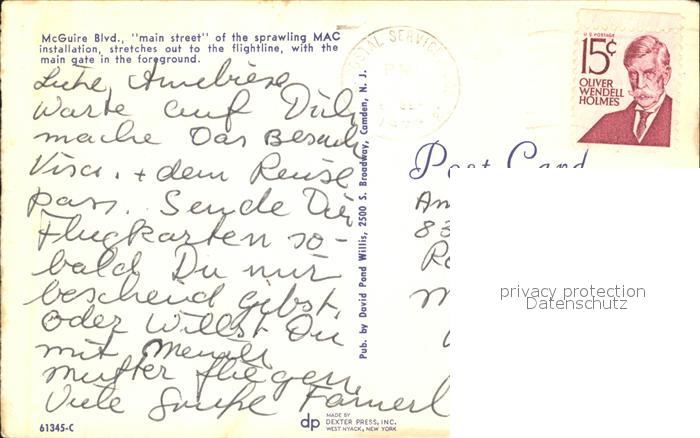 McGuire Blvd., "main street" of the sprawling MAC
installation, stretches out to the flightline, with the
main gate in the foreground.
warte auf Dich
mache Das Besuch
Visa. + dem Reise
pass. Sende Dir
Flugkarten so-
bald Du mir
bescheid gibst,
oder willst Du
mit Meiner
mutter fliegen.
Viele
61345-C
Pub. by David Pond Willis, 2500 S. Broadway, Camden, N. J.
dp MADE BY
DEXTER PRESS, INC.
WEST NYACK, NEW YORK
POSTAL SERVICE
PM
U.S. POSTAGE
15¢
OLIVER
WENDELL
HOLMES
Post Card
An
83
privacy protection
Datenschutz